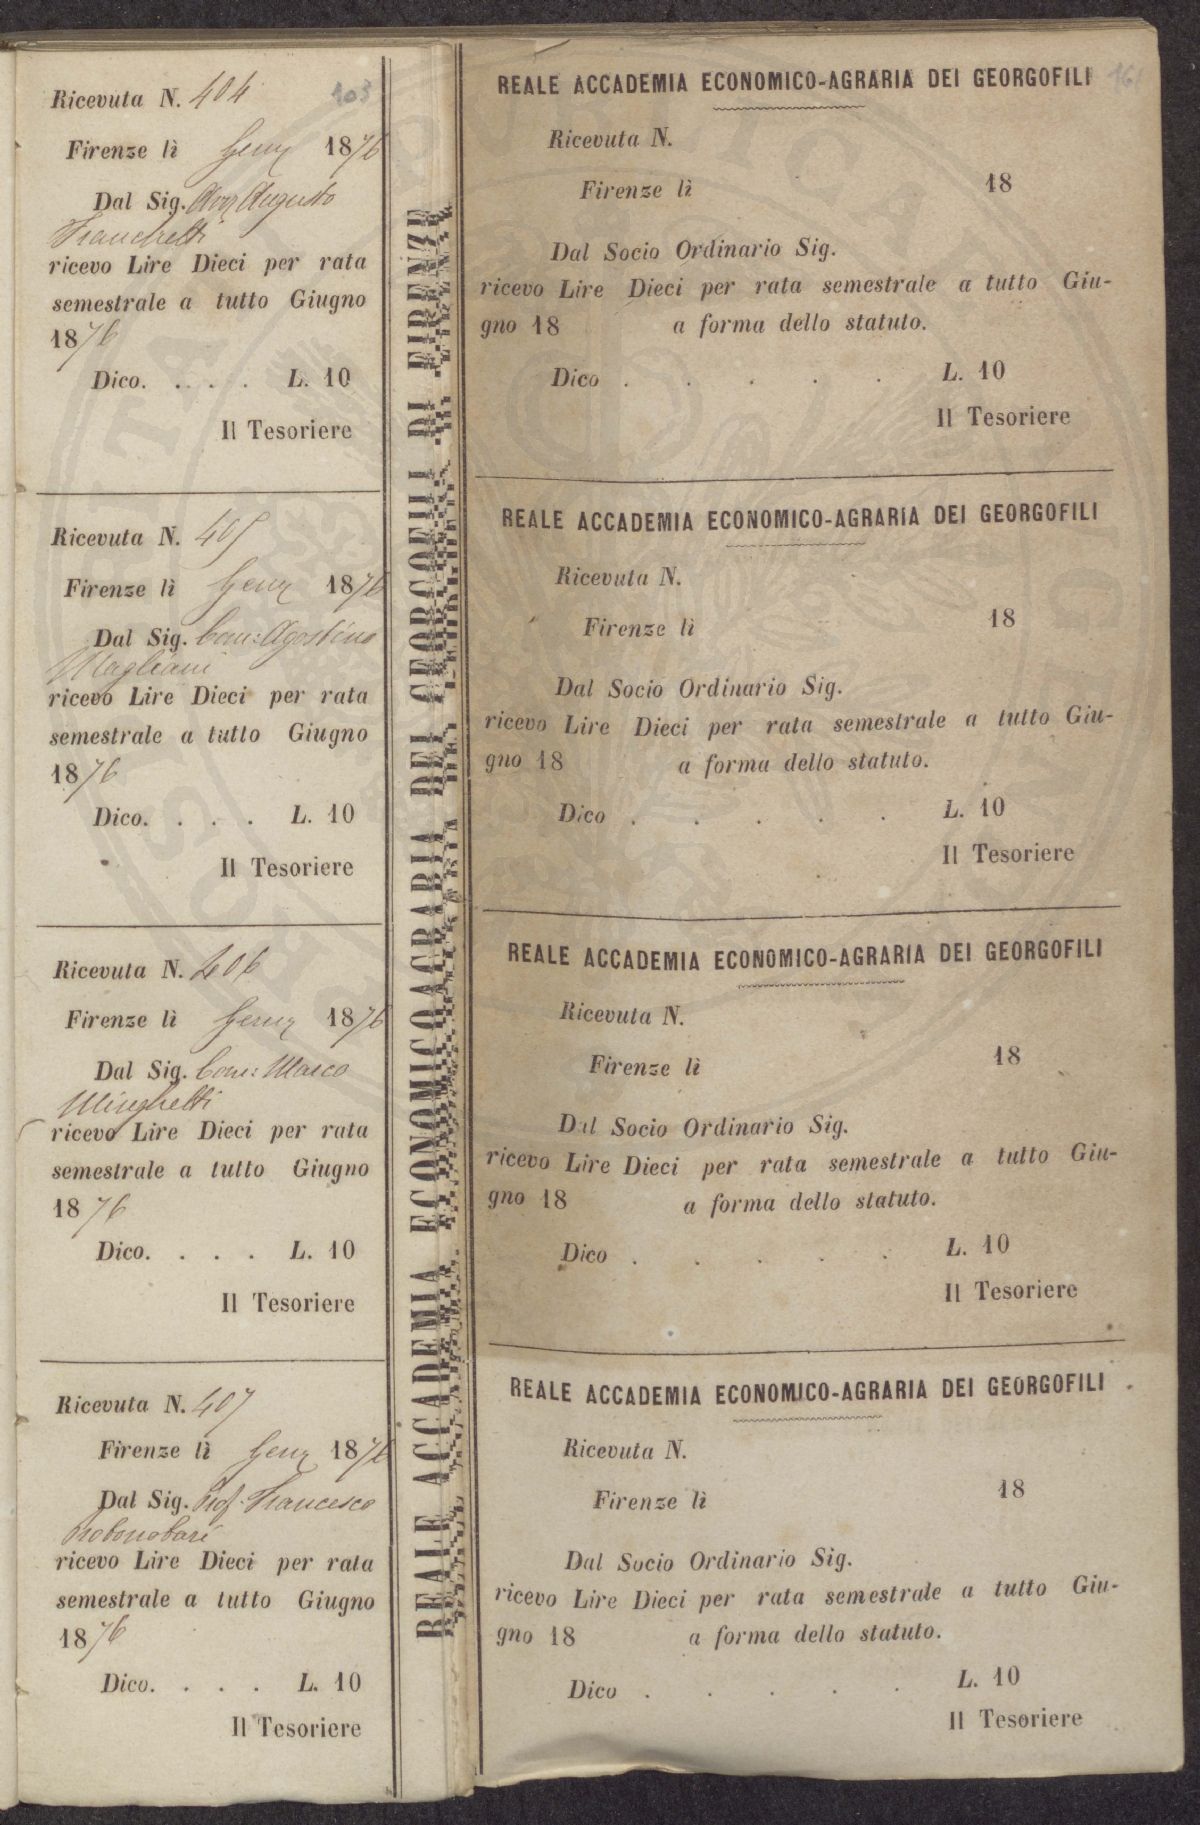 Ricevuta N. 404
103
Firenze lì Genn 1876
Dal Sig. Avv Augusto
Franchetti
ricevo Lire Dieci per rata
semestrale a tutto Giugno
1876
Dico. . . . . L. 10
Il Tesoriere
Ricevuta N. 405
Firenze lì Genn 1876
Dal Sig. Com: Agostino
Magliani
ricevo Lire Dieci per rata
semestrale a tutto Giugno
1876
Dico. . . . L. 10
Il Tesoriere
Ricevuta N. 406
Firenze lì Genn 1876
Dal Sig. Com: Marco
Minghetti
ricevo Lire Dieci per rata
semestrale a tutto Giugno
1876
Dico. . . . L. 10
Il Tesoriere
Ricevuta N. 407
Firenze lì Genn 1876
Dal Sig. Prof. Francesco
ricevo Lire Dieci per rata
semestrale a tutto Giugno
1876
Dico. . . . L. 10
Il Tesoriere
REALE ACCADEMIA ECONOMICO AGRARIA DEI GEORGOFILI DI FIRENZE
REALE ACCADEMIA ECONOMICO-AGRARIA DEI GEORGOFILI
161
Ricevuta N.
Firenze lì 18
Dal Socio Ordinario Sig.
ricevo Lire Dieci per rata semestrale a tutto Giu-
gno 18 a forma dello statuto.
Dico . . . . . L. 10
Il Tesoriere
REALE ACCADEMIA ECONOMICO-AGRARIA DEI GEORGOFILI
Ricevuta N.
Firenze lì 18
Dal Socio Ordinario Sig.
ricevo Lire Dieci per rata semestrale a tutto Giu-
gno 18 a forma dello statuto.
Dico . . . . . L. 10
Il Tesoriere
REALE ACCADEMIA ECONOMICO-AGRARIA DEI GEORGOFILI
Ricevuta N.
Firenze lì 18
Dal Socio Ordinario Sig.
ricevo Lire Dieci per rata semestrale a tutto Giu-
gno 18 a forma dello statuto.
Dico . . . . . L. 10
Il Tesoriere
REALE ACCADEMIA ECONOMICO-AGRARIA DEI GEORGOFILI
Ricevuta N.
Firenze lì 18
Dal Socio Ordinario Sig.
ricevo Lire Dieci per rata semestrale a tutto Giu-
gno 18 a forma dello statuto.
Dico . . . . . L. 10
Il Tesoriere